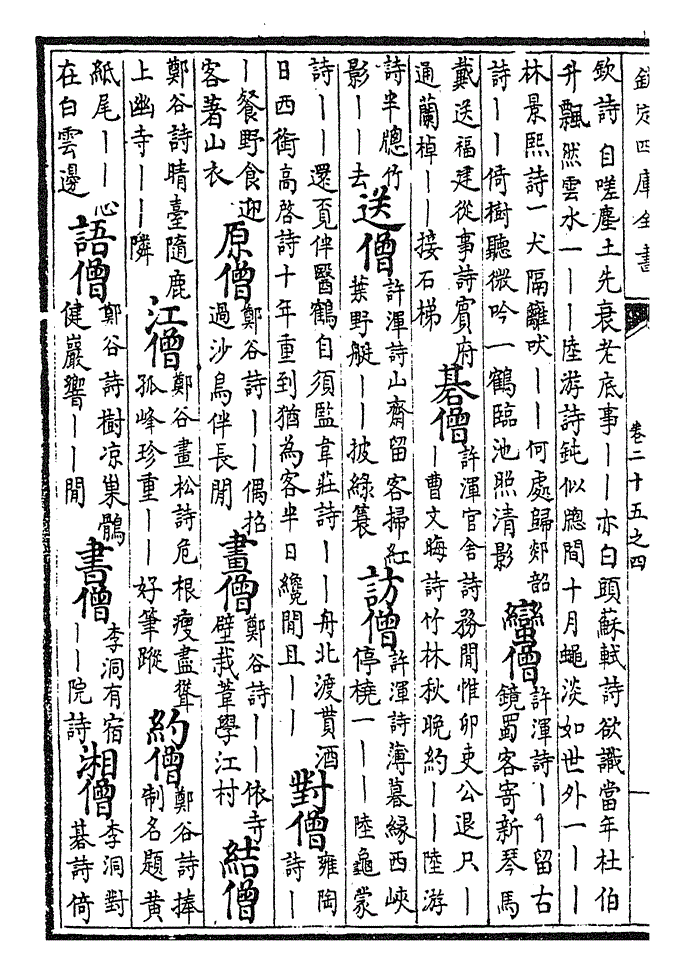 欽定四庫全書
卷二十五之四
欽詩自嗟塵土先衰老底事丨丨亦白頭蘇軾詩欲識當年杜伯
升飄然雲水一丨丨陸游詩鈍似牕間十月蠅淡如世外一丨丨
林景熙詩一犬隔籬吠丨丨何處歸郯韶
詩丨丨倚樹聽微吟一鶴臨池照清影
蠻僧
許渾詩丨丨留古
鏡蜀客寄新琴馬
戴送福建從事詩賓府
通蘭棹丨丨接石梯
碁僧
許渾官舍詩務閒惟卯吏公退只丨
丨曹文晦詩竹林秋晚約丨丨陸游
詩半牕竹
影丨丨去
送僧
許渾詩山齋留客掃紅
葉野艇丨丨披綠蓑
訪僧
許渾詩薄暮緣西峽
停橈一丨丨陸龜蒙
詩丨丨還覓伴醫鶴自須監韋莊詩丨丨舟北渡貰酒
日西銜高啓詩十年重到猶為客半日纔閒且丨丨
對僧
雍陶
詩丨
丨餐野食迎
客著山衣
原僧
鄭谷詩丨丨偶招
過沙鳥伴長閒
畫僧
鄭谷詩丨丨依寺
壁栽葦學江村
結僧
鄭谷詩晴臺隨鹿
上幽寺丨丨隣
江僧
鄭谷畫松詩危根瘦盡聳
孤峰珍重丨丨好筆蹤
約僧
鄭谷詩捧
制名題黃
紙尾丨丨心
在白雲邊
語僧
鄭谷詩樹凉巢鶻
健巖響丨丨閒
書僧
李洞有宿
丨丨院詩
湘僧
李洞對
碁詩倚